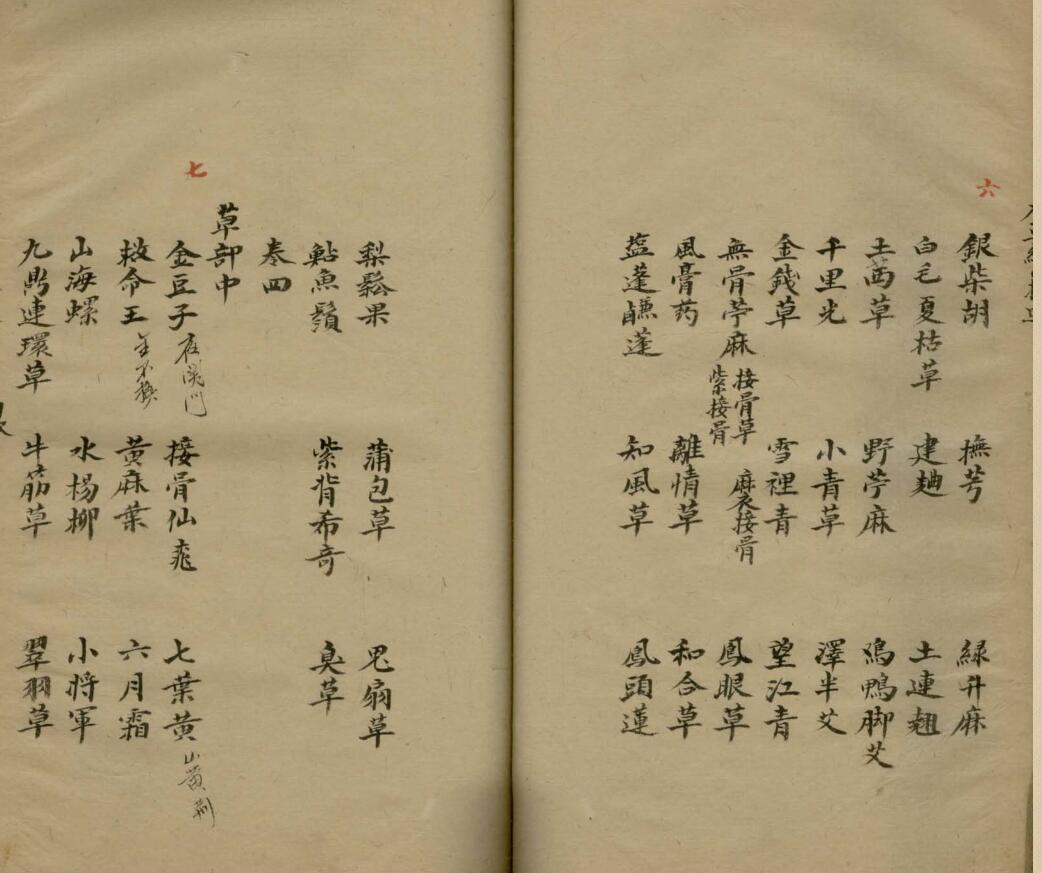 六
銀柴胡 撫芎 緑升麻
白毛夏枯草 建麯 土連翹
土茜草 野苧麻 鸡鴨脚艾
千里光 小青草 澤半艾
金錢草 雪裡青 望江青
無骨苧麻 接骨草 紫接骨 麻衣接骨 鳳眼草
風膏药 離情草 和合草
蓬 知風草 鳳頭蓮
梨鬆果 蒲包草 鬼扇草
鮎魚鬚 紫背希奇 臭草
卷四
草部中
七
金豆子 夜関门 接骨仙桃 七葉黄 山黄荆
救命王 金不换 黄麻葉 六月霜
山海螺 水楊柳 小將軍
九鼎連環草 牛筋草 翠羽草